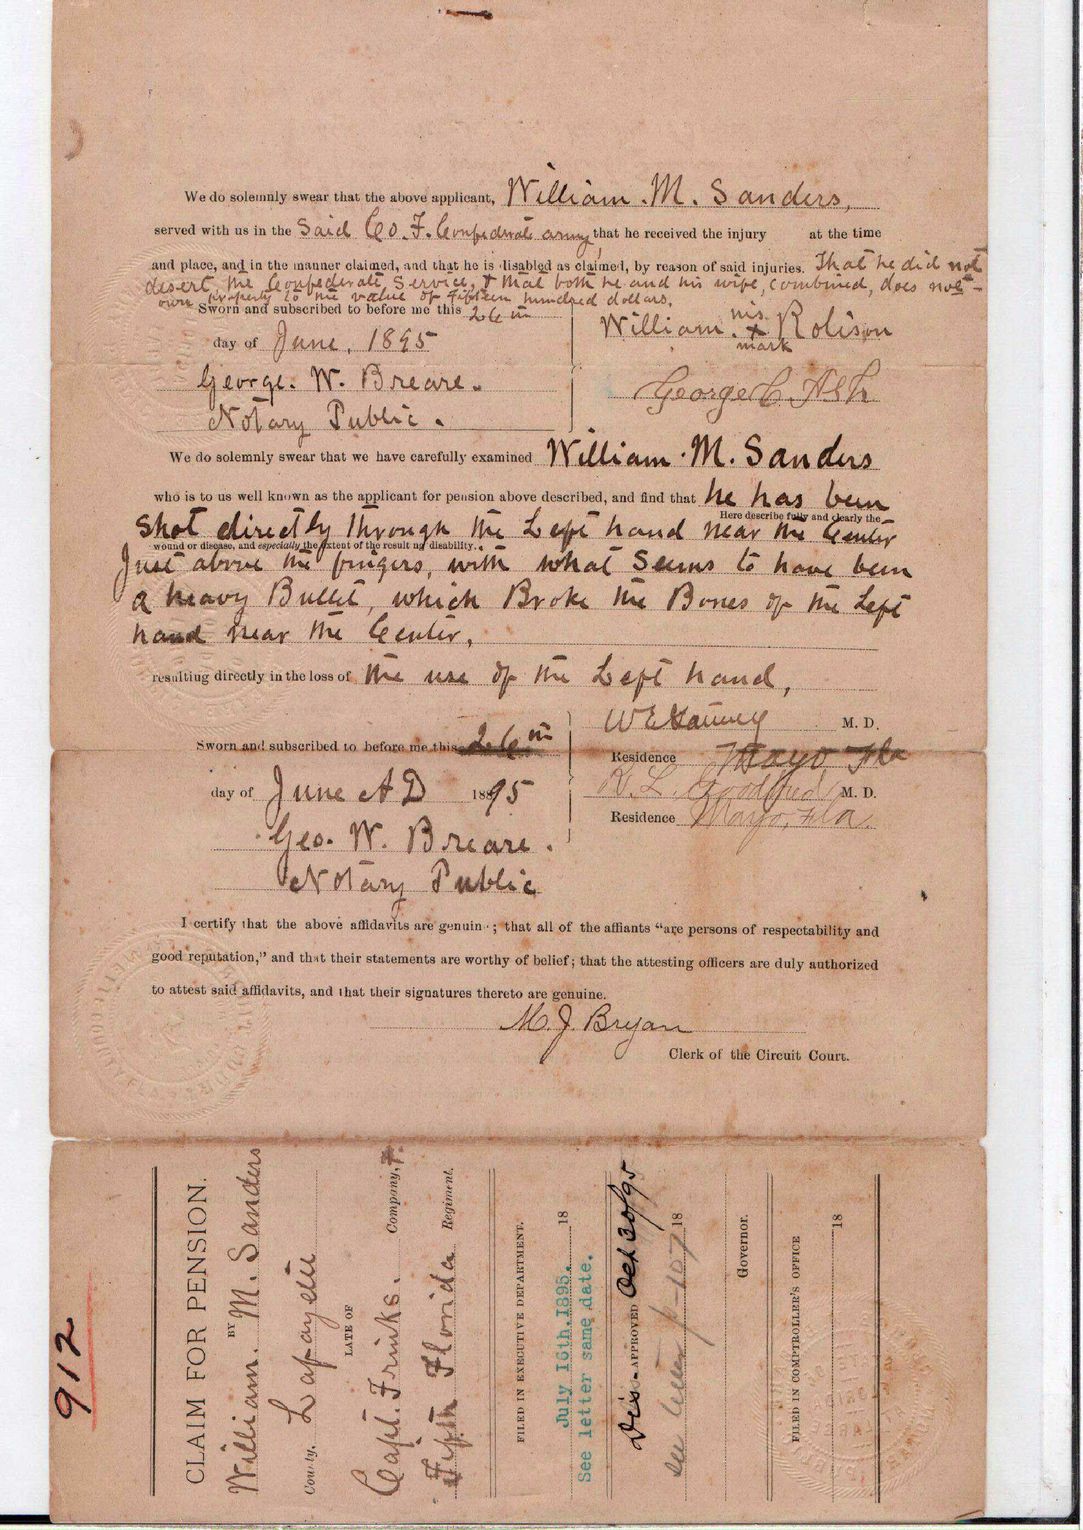 We do solemnly swear that the above applicant, William. M. Sanders,
served with us in the Said Co. F. Confederate army, that he received the injury at the time
and place, and in the manner claimed, and that he is disabled as claimed, by reason of said injuries. That he did not
desert, the Confederate Service, & that both he and his wife, combined, does not-
own property to the value of fifteen hundred dollars.
Sworn and subscribed to before me this 26th
day of June, 1895
George. W. Breare.
Notary Public.
William. his x mark Rolison
George C. Ash
We do solemnly swear that we have carefully examined William. M. Sanders
who is to us well known as the applicant for pension above described, and find that he has been
Here describe fully and clearly the
Shot directly through the Left hand near the Center
wound or disease, and especially the extent of the resulting disability.
Just above the fingers, with what Seems to have been
a heavy Bullet, which Broke the Bones of the Left
hand near the Center,
resulting directly in the loss of the use of the Left hand,
Sworn and subscribed to before me this 26th
day of June A D 1895
Geo. W. Breare.
Notary Public
W E M. D.
Residence Mayo Fla
L. M. D.
Residence Mayo, Fla.
I certify that the above affidavits are genuine; that all of the affiants "are persons of respectability and
good reputation," and that their statements are worthy of belief; that the attesting officers are duly authorized
to attest said affidavits, and that their signatures thereto are genuine.
M. J. Bryan
Clerk of the Circuit Court.
912
CLAIM FOR PENSION.
BY
William. M. Sanders
County, Lafayette
LATE OF
Capt. Frinks. Company, F.
Fifth Florida Regiment.
FILED IN EXECUTIVE DEPARTMENT.
July 16th, 1895. 18
See letter same date.
Dis- APPROVED Oct 30/95
see letter p-107 18
Governor.
FILED IN COMPTROLLER'S OFFICE
18